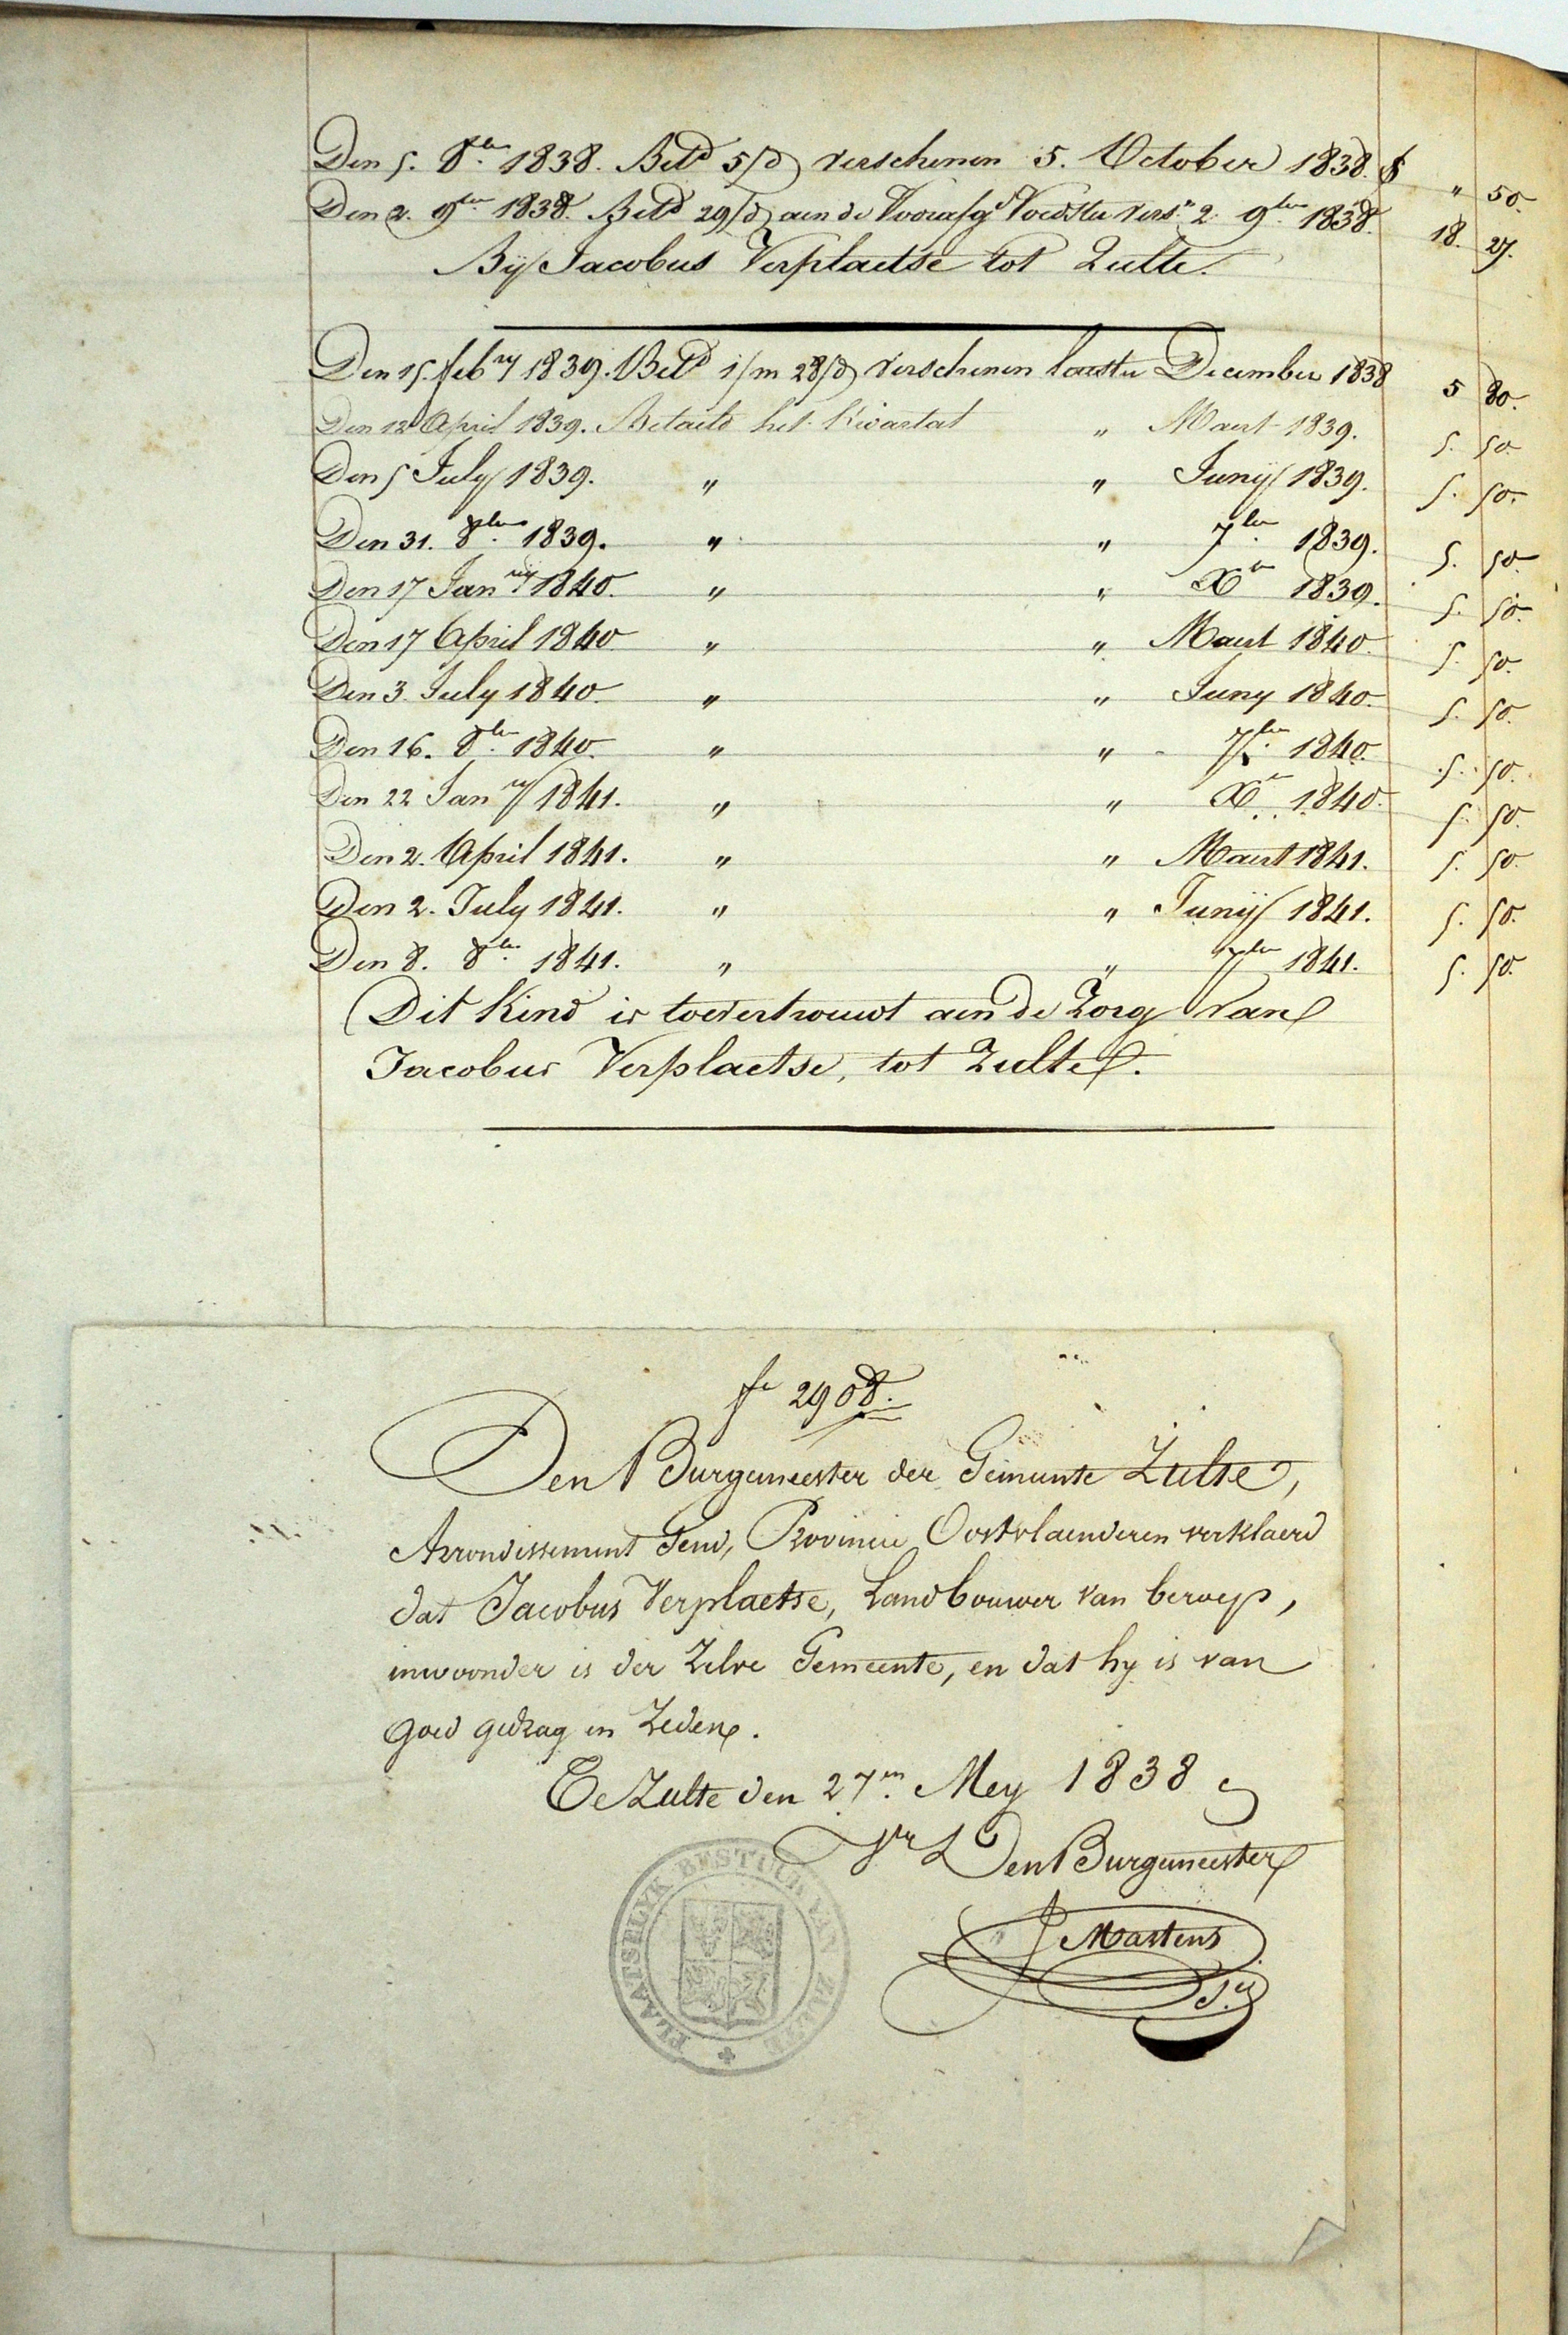 Den 5. 8ber 1838. Betd 5/d verschenen 5. October 1838. f " 50.
Den 2. 9ber 1838. Betd 29/d aen de Voorafgd Voedster vers. 2 9ber 1838. 18. 27.
By Jacobus Verplaetse tot Zulte.
Den 15. febry 1839. Betd 1/m 28/d verschenen laesten December 1838 5 80.
Den 12 April 1839. Betaeld het kwartal " Maert 1839. 5. 50.
Den 5 July 1839. " " Juny 1839. 5. 50.
Den 31. 8ber 1839. " " 7ber 1839. 5. 50.
Den 17 Janry 1840. " " Xber 1839. 5. 50.
Den 17 April 1840 " " Maert 1840. 5. 50.
Den 3. July 1840. " " Juny 1840. 5. 50.
Den 16. 8ber 1840. " " 7ber 1840. 5. 50.
Den 22 Janry 1841. " " Xber 1840. 5. 50.
Den 2. April 1841. " " Maert 1841. 5. 50.
Den 2. July 1841. " " Junij 1841. 5. 50.
Den 8. 8ber 1841. " " 7ber 1841. 5. 50.
Dit Kind is toevertrouwt aen de Zorg van
Jacobus Verplaetse, tot Zulte.
fo 2908.
Den Burgemeester der Gemeente Zulte,
Arrondissement Gend, Provincie Oostvlaenderen verklaerd
dat Jacobus Verplaetse, Landbouwer van beroep,
inwoonder is der Zelve Gemeente, en dat hy is van
goed gedrag en Zeden.
Te Zulte den 27en Mey 1838
Vr Den Burgemeester
J Martens
PLAATSELYK BESTUUR VAN ZULTE